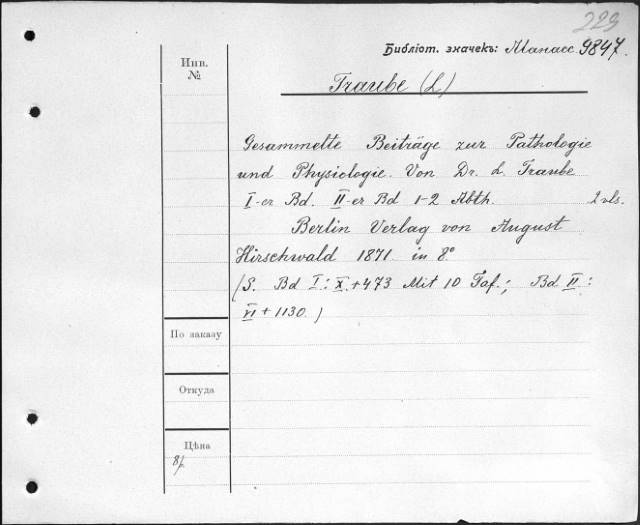 223
Библіот. значекъ: Манасс. 9847.
Инв.
№
Traube (L)
Gesammelte Beiträge zur Pathologie
und Physiologie. Von Dr. L. Traube
I-er Bd. II-er Bd 1-2 Abth. 2 vls.
Berlin Verlag von August
Hirschwald 1871 in 8°
(S. Bd I: X+473 Mit 10 Taf.; Bd II:
VI + 1130.)
По заказу
Откуда
Цѣна
8р.